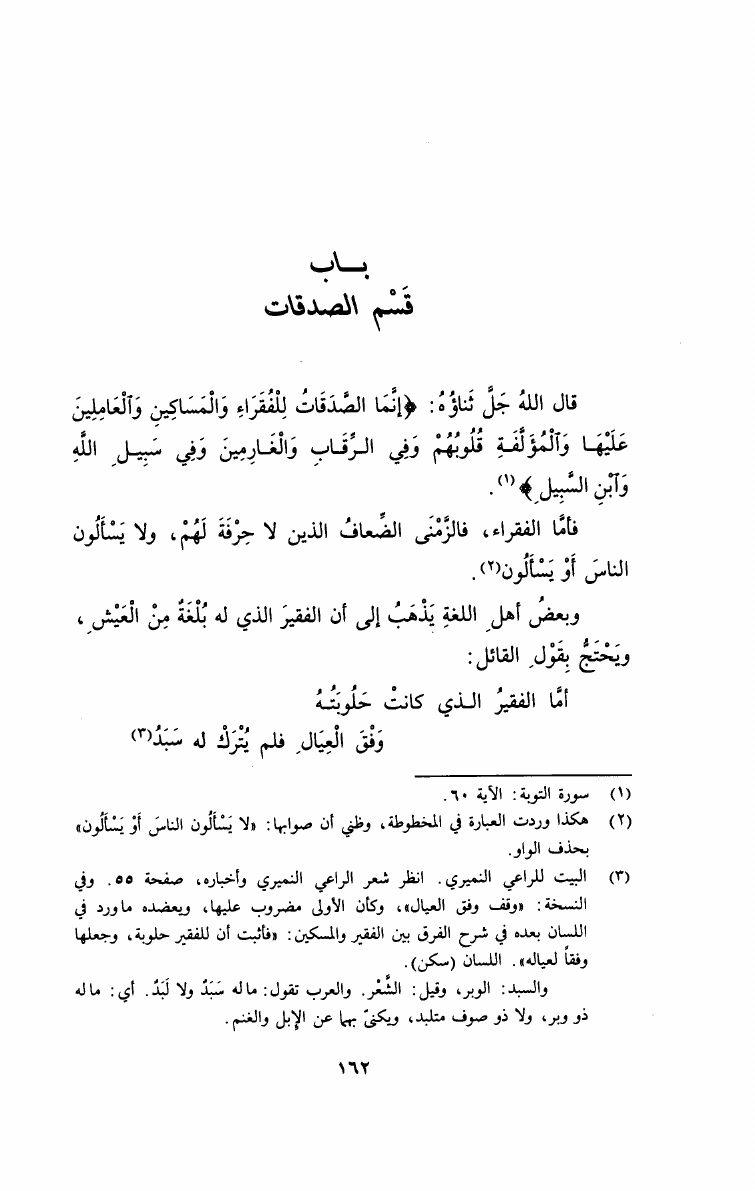 بـــاب
قَسْم الصدقات
قال اللهُ جَلَّ ثَناؤُهُ: ﴿إنَّمَا الصَّدَقَاتُ لِلْفُقَرَاءِ وَالْمَسَاكِينِ وَٱلْعَامِلِينَ
عَلَيْهَـا وَٱلْمُؤَلَّفَـةِ قُلُوبُهُمْ وَفِي الـرِّقَـابِ وَالْغَـارِمِينَ وَفِي سَبِيـلِ اللَّهِ
وَٱبْنِ السَّبِيلِ﴾(١).
فأمَّا الفقراء، فالزَّمْنَى الضِّعافُ الذين لا حِرْفَةَ لَهُمْ، ولا يَسْأَلُون
الناسَ أَوْ يَسْأَلُون(٢).
وبعضُ أهلِ اللغةِ يَذْهَبُ إلى أن الفقيرَ الذي له بُلْغَةٌ مِنْ الْعَيْشِ،
ويَحْتَجُّ بِقَوْلِ القائل:
أمَّا الفقيرُ الـذي كانتْ حَلُوبَتُـهُ
وَفْقَ الْعِيَالِ فلم يُتْرَكْ له سَبَدُ(٣)
(١) سورة التوبة: الآية ٦٠.
(٢) هكذا وردت العبارة في المخطوطة، وظني أن صوابها: «لا يَسْأَلُون الناسَ أَوْ يَسْأَلُون»
بحذف الواو.
(٣) البيت للراعي النميري. انظر شعر الراعي النميري وأخباره، صفحة ٥٥. وفي
النسخة: «وقف وفق العيال»، وكأن الأولى مضروب عليها، ويعضده ماورد في
اللسان بعده في شرح الفرق بين الفقير والمسكين: «فأثبت أن للفقير حلوبة، وجعلها
وفقاً لعياله». اللسان (سكن).
والسبد: الوبر، وقيل: الشَّعْر. والعرب تقول: ماله سَبَدٌ ولا لَبَدٌ. أي: ماله
ذو وبر، ولا ذو صوف متلبد، ويكنىّ بهما عن الإبل والغنم.
١٦٢